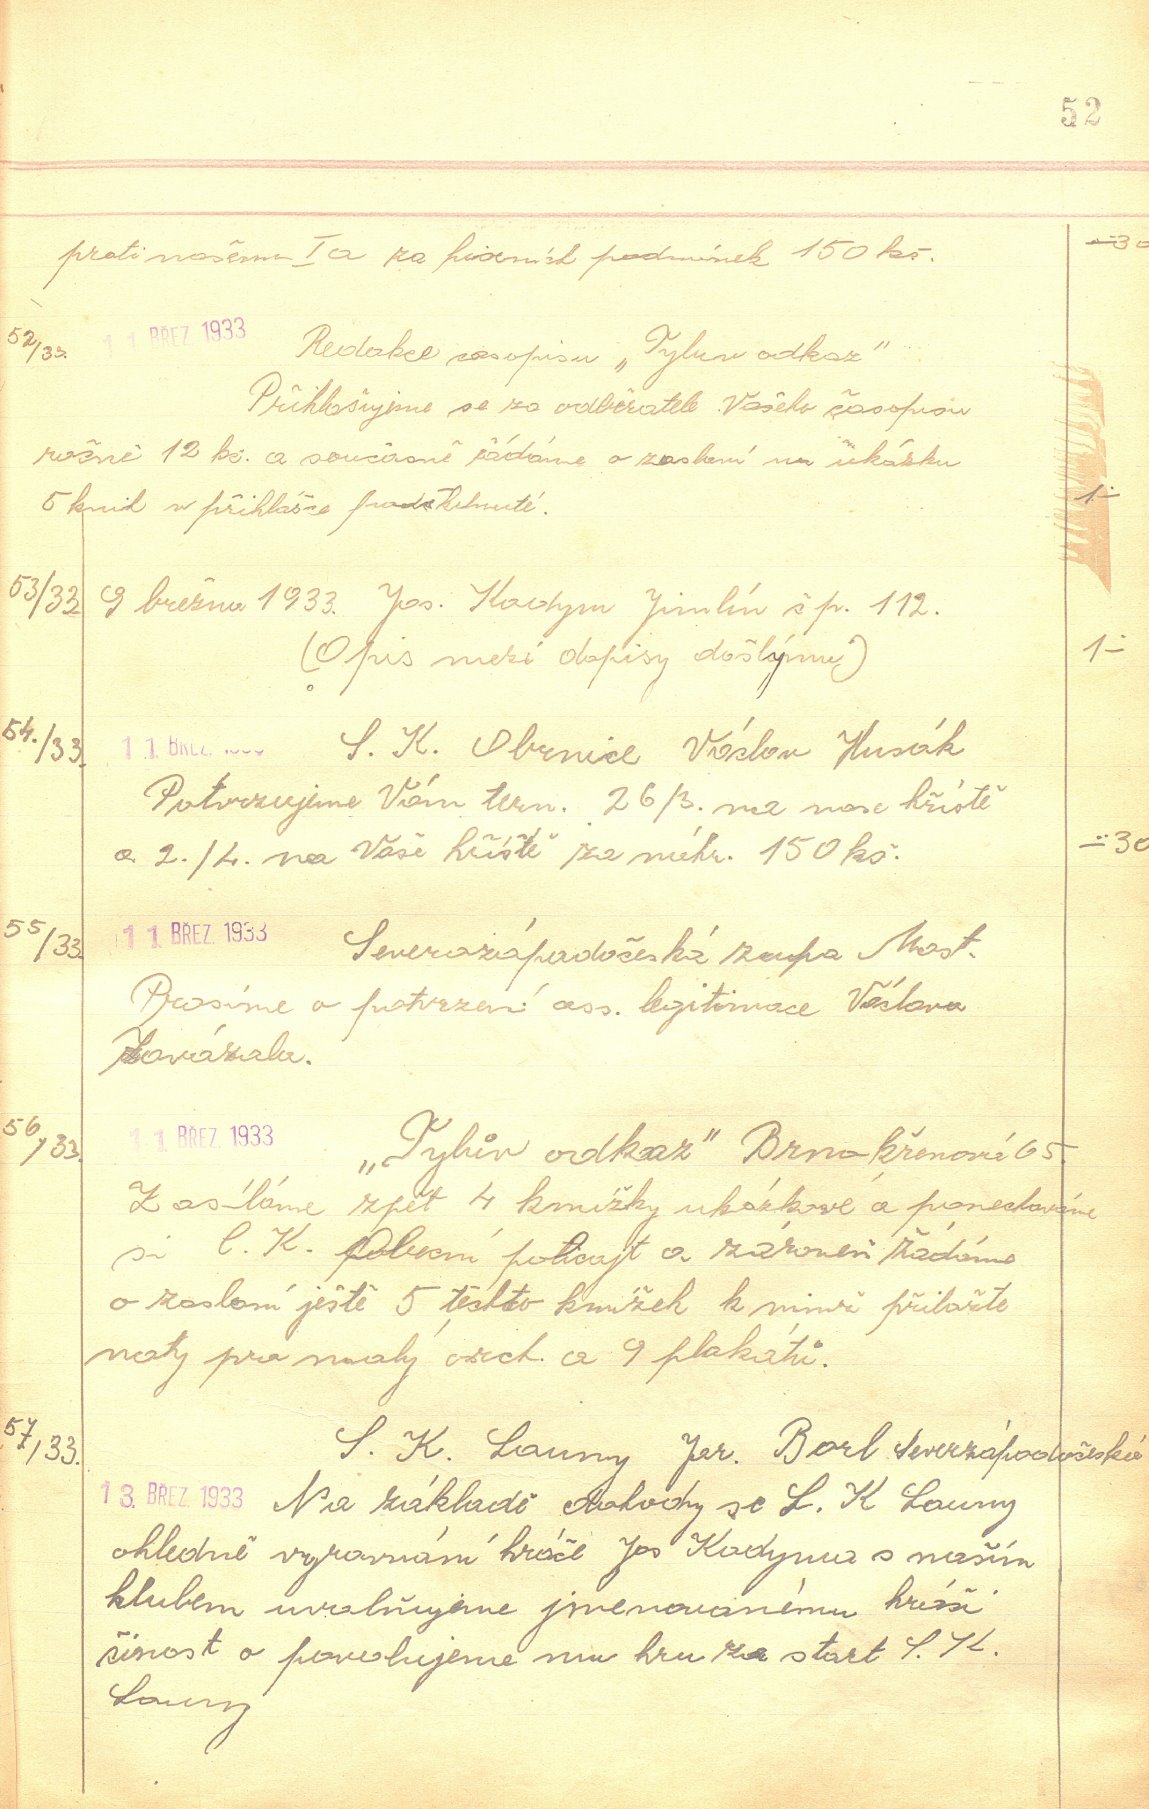 52
proti našemu Ia za fixních podmínek 150 kč. -30
52/33. 11 BŘEZ. 1933 Redakce časopisu „Tylův odkaz"
Přihlašujeme se za odběratele Vašeho časopisu
ročně 12 kč. a současně žádáme o zaslání na ukázku
5 knih v přihlášce podtrhnuté. 1-
53/33 9 března 1933. Jos. Kadym Jimlín čp. 112.
(Opis mezi dopisy došlými) 1-
54./33. 11 BŘEZ. 1933 S. K. Obrnice Václav Husák
Potvrzujeme Vám term. 26/3. na nase hřiště
a 2./4. na Vaše hřiště za náhr. 150 kč. -30
55/33 11 BŘEZ. 1933 Severozápadočeská župa Most.
Prosíme o potvrzení ass. legitimace Václava
Zavázala.
56/33. 11 BŘEZ. 1933 „Tylův odkaz" Brno Křenová 65.
Zasíláme zpět 4 knížky ukázkové a ponecháváme
si C. K. Polní policajt a zároveň žádáme
o zaslání ještě 5 těchto knížek k nimž přiložte
noty pro malý orch. a 9 plakátů.
57/33. S. K. Louny Jar. Borl Severozápadočeská
13. BŘEZ. 1933 Na základě dohody se S. K Louny
ohledně vyrovnání hráče Jos Kadyma s naším
klubem uvolňujeme jmenovanému hráči
činost a povolujeme mu hru za start S. K.
Louny